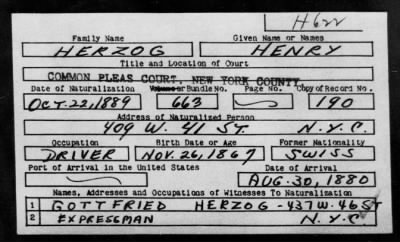 H622
Family Name Given Name or Names
HERZOG HENRY
Title and Location of Court
COMMON PLEAS COURT, NEW YORK COUNTY.
Date of Naturalization Volume or Bundle No. Page No. Copy of Record No.
OCT. 22, 1889 663 190
Address of Naturalized Person
409 W. 41 ST. N.Y.C.
Occupation Birth Date or Age Former Nationality
DRIVER NOV. 26, 1867 SWISS
Port of Arrival in the United States Date of Arrival
AUG. 30, 1880
Names, Addresses and Occupations of Witnesses To Naturalization
1 GOTTFRIED HERZOG - 437 W. 46 ST
2 EXPRESSMAN N.Y.C.